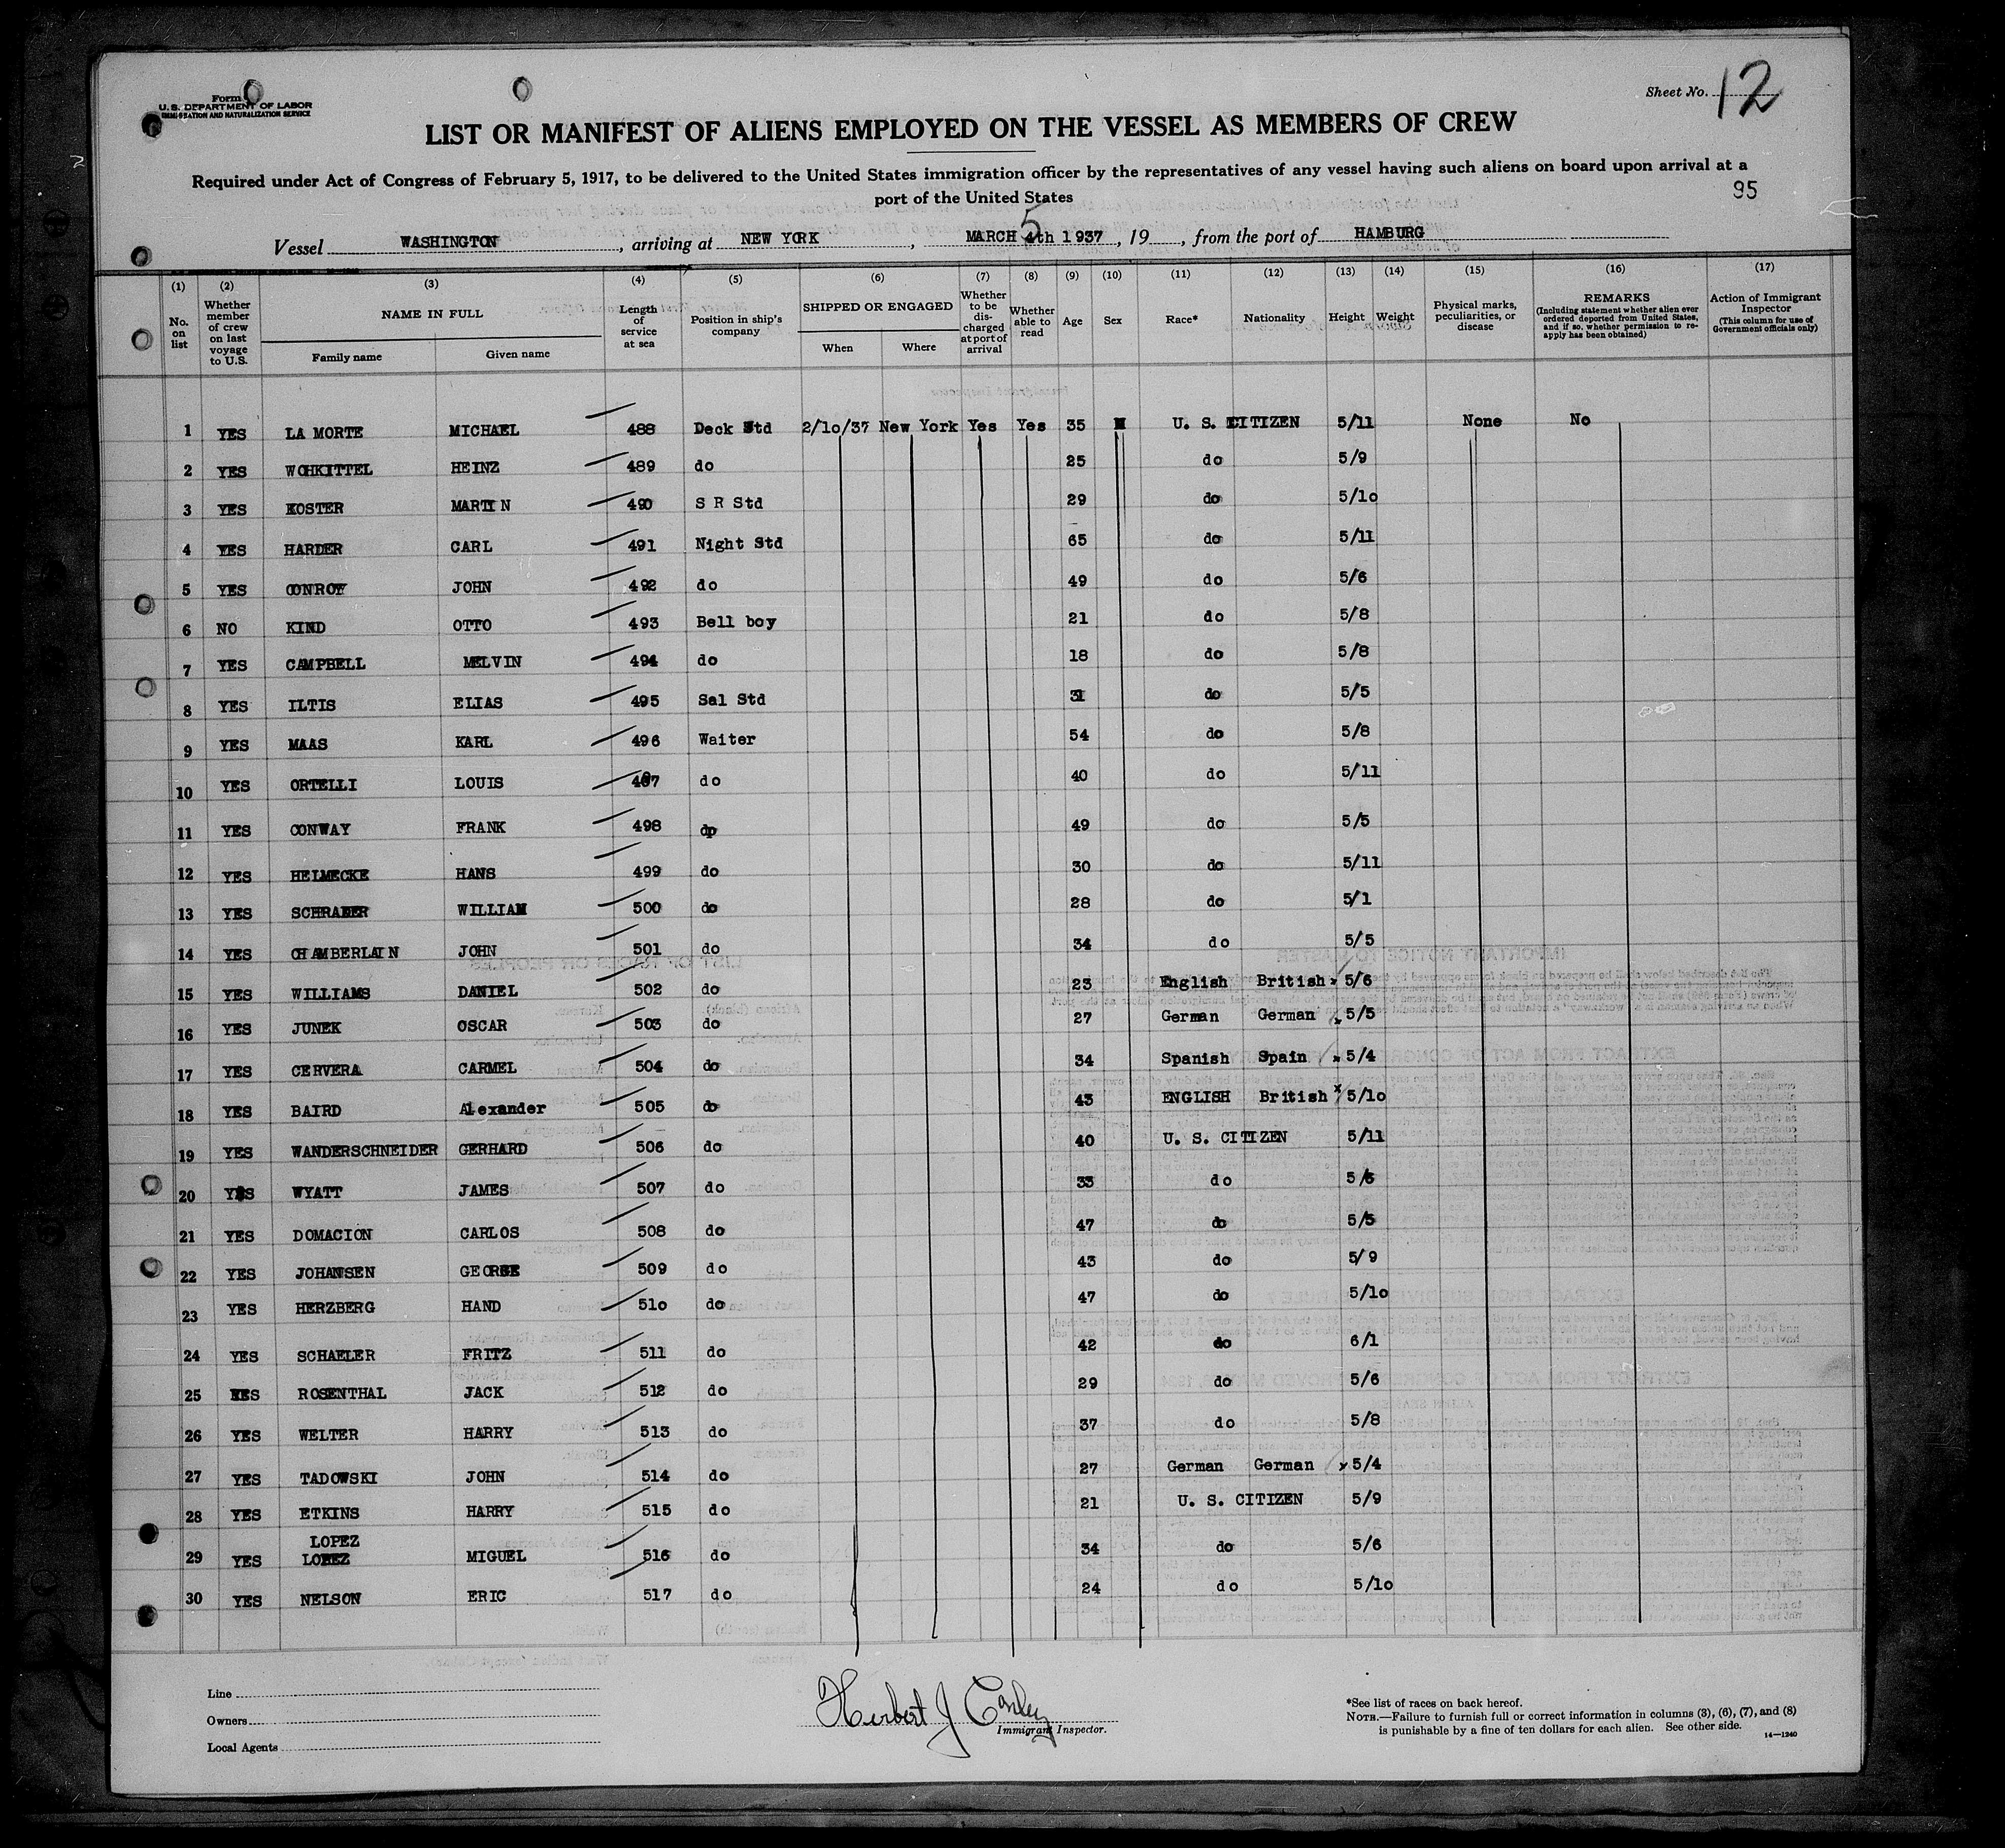 Form
U. S. DEPARTMENT OF LABOR
IMMIGRATION AND NATURALIZATION SERVICE
Sheet No. 12
LIST OR MANIFEST OF ALIENS EMPLOYED ON THE VESSEL AS MEMBERS OF CREW
Required under Act of Congress of February 5, 1917, to be delivered to the United States immigration officer by the representatives of any vessel having such aliens on board upon arrival at a
port of the United States
95
Vessel WASHINGTON, arriving at NEW YORK, MARCH 4th 5 1937, 19, from the port of HAMBURG
(1) (2) (3) (4) (5) (6) (7) (8) (9) (10) (11) (12) (13) (14) (15) (16) (17)
No. on list
Whether member of crew on last voyage to U.S.
NAME IN FULL
Family name Given name
Length of service at sea
Position in ship's company
SHIPPED OR ENGAGED
When Where
Whether to be discharged at port of arrival
Whether able to read
Age Sex Race* Nationality Height Weight
Physical marks, peculiarities, or disease
REMARKS
(Including statement whether alien ever ordered deported from United States, and if so, whether permission to reapply has been obtained)
Action of Immigrant Inspector
(This column for use of Government officials only)
1 YES LA MORTE MICHAEL 488 Deck Std 2/10/37 New York Yes Yes 35 M U. S. CITIZEN 5/11 None No
2 YES WOHKITTEL HEINZ 489 do 25 do 5/9
3 YES KOSTER MARTIN 490 S R Std 29 do 5/10
4 YES HARDER CARL 491 Night Std 65 do 5/11
5 YES CONROY JOHN 492 do 49 do 5/6
6 NO KIND OTTO 493 Bell boy 21 do 5/8
7 YES CAMPBELL MELVIN 494 do 18 do 5/8
8 YES ILTIS ELIAS 495 Sal Std 31 do 5/5
9 YES MAAS KARL 496 Waiter 54 do 5/8
10 YES ORTELLI LOUIS 497 do 40 do 5/11
11 YES CONWAY FRANK 498 dp 49 do 5/5
12 YES HELMECKE HANS 499 do 30 do 5/11
13 YES SCHRADER WILLIAM 500 do 28 do 5/1
14 YES CHAMBERLAIN JOHN 501 do 34 do 5/5
15 YES WILLIAMS DANIEL 502 do 23 English British 5/6
16 YES JUNEK OSCAR 503 do 27 German German 5/5
17 YES CERVERA CARMEL 504 do 34 Spanish Spain 5/4
18 YES BAIRD Alexander 505 do 43 ENGLISH British 5/10
19 YES WANDERSCHNEIDER GERHARD 506 do 40 U. S. CITIZEN 5/11
20 YES WYATT JAMES 507 do 33 do 5/6
21 YES DOMACION CARLOS 508 do 47 do 5/5
22 YES JOHANSEN GEORGE 509 do 43 do 5/9
23 YES HERZBERG HAND 510 do 47 do 5/10
24 YES SCHAELER FRITZ 511 do 42 do 6/1
25 YES ROSENTHAL JACK 512 do 29 do 5/6
26 YES WELTER HARRY 513 do 37 do 5/8
27 YES TADOWSKI JOHN 514 do 27 German German 5/4
28 YES ETKINS HARRY 515 do 21 U. S. CITIZEN 5/9
LOPEZ
29 YES LOPEZ MIGUEL 516 do 34 do 5/6
30 YES NELSON ERIC 517 do 24 do 5/10
Line
Owners
Local Agents
Herbert J Conley
Immigrant Inspector.
*See list of races on back hereof.
NOTE.—Failure to furnish full or correct information in columns (3), (6), (7), and (8)
is punishable by a fine of ten dollars for each alien. See other side.
14—1240